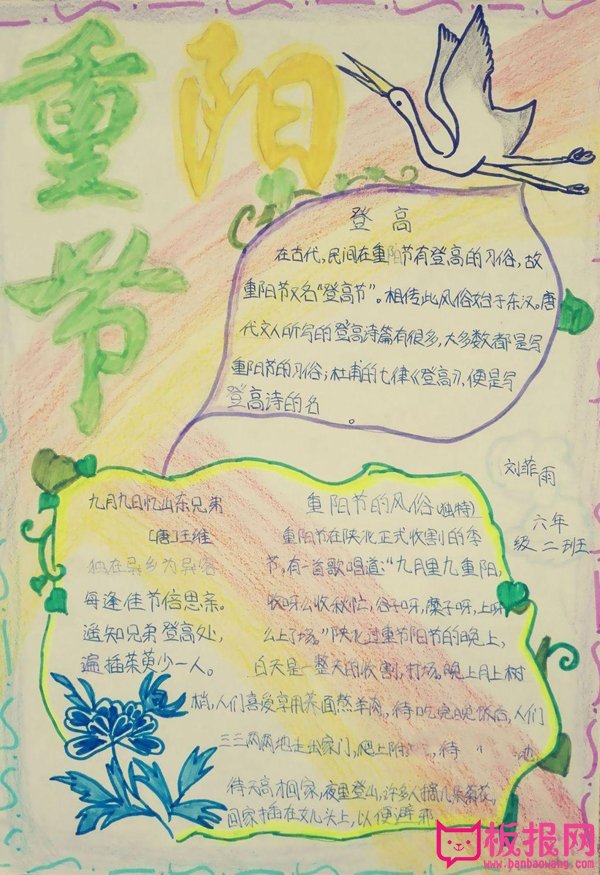 重阳
节
登高
在古代，民间在重阳节有登高的习俗，故
重阳节又名“登高节”。相传此风俗始于东汉。唐
代文人所写的登高诗篇有很多，大多数都是写
重阳节的习俗；杜甫的七律《登高》，便是写
登高诗的名
。
刘菲雨
六年
级二班
九月九日忆山东兄弟
[唐]王维
独在异乡为异客
每逢佳节倍思亲。
遥知兄弟登高处，
遍插茱萸少一人。
重阳节的风俗(独特)
重阳节在陕北正式收割的季
节，有一首歌唱道：“九月里九重阳，
收呀么收秋忙，谷子呀，糜子呀，上呀
么上了场。”陕北过重节阳节的晚上，
白天是一整天的收割，打场。晚上月上树
梢，人们喜爱享用荞面熬羊肉，待吃完晚饭后，人们
三三两两地走出家门，爬上附 待
待天高才回家，夜里登山，许多人摘几朵菊花，
回家插在女儿头上，以便避邪
板报网
www.banbaowang.com